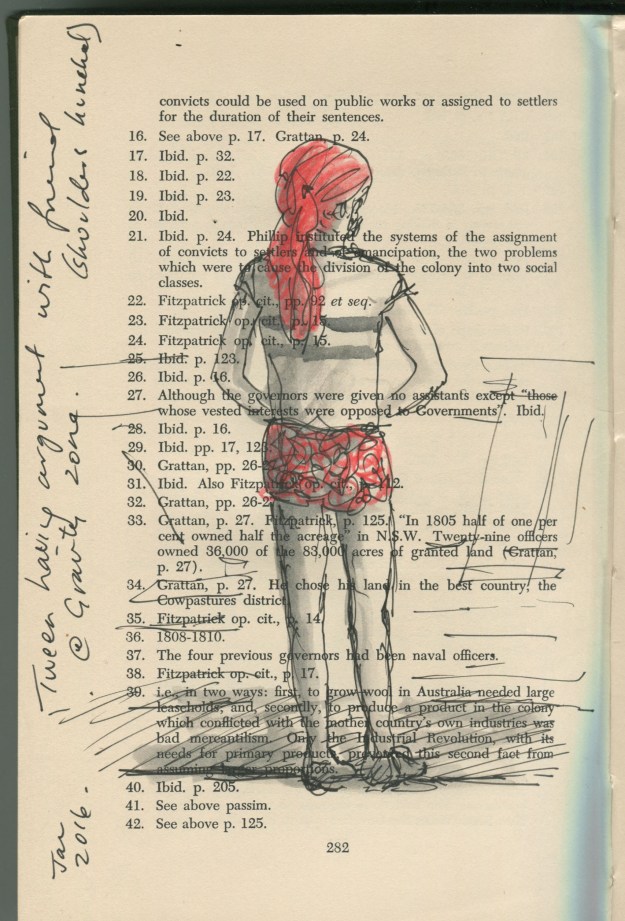 convicts could be used on public works or assigned to settlers
for the duration of their sentences.
16. See above p. 17. Grattan, p. 24.
17. Ibid. p. 32.
18. Ibid. p. 22.
19. Ibid. p. 23.
20. Ibid.
21. Ibid. p. 24. Phillip instituted the systems of the assignment
of convicts to settlers and of emancipation, the two problems
which were to cause the division of the colony into two social
classes.
22. Fitzpatrick op. cit., pp. 92 et seq.
23. Fitzpatrick op. cit., p. 15.
24. Fitzpatrick op. cit., p. 15.
25. Ibid. p. 123.
26. Ibid. p. 16.
27. Although the governors were given no assistants except “those
whose vested interests were opposed to Governments”. Ibid.
28. Ibid. p. 16.
29. Ibid. pp. 17, 123
30. Grattan, pp. 26-2
31. Ibid. Also Fitzpatrick op. cit., p. 112.
32. Grattan, pp. 26-2
33. Grattan, p. 27. Fitzpatrick, p. 125. “In 1805 half of one per
cent owned half the acreage” in N.S.W. Twenty-nine officers
owned 36,000 of the 83,000 acres of granted land (Grattan,
p. 27).
34. Grattan, p. 27. He chose his land in the best country, the
Cowpastures district
35. Fitzpatrick op. cit., p. 14.
36. 1808-1810.
37. The four previous governors had been naval officers.
38. Fitzpatrick op. cit., p. 17.
39. i.e., in two ways: first, to grow wool in Australia needed large
leaseholds, and, secondly, to produce a product in the colony
which conflicted with the mother country’s own industries was
bad mercantilism. Only the Industrial Revolution, with its
needs for primary products, prevented this second fact from
assuming larger proportions.
40. Ibid. p. 205.
41. See above passim.
42. See above p. 125.
282
Tween having argument with friend
(shoulders hunched)
@ Gravity zone.
Jan
2016.